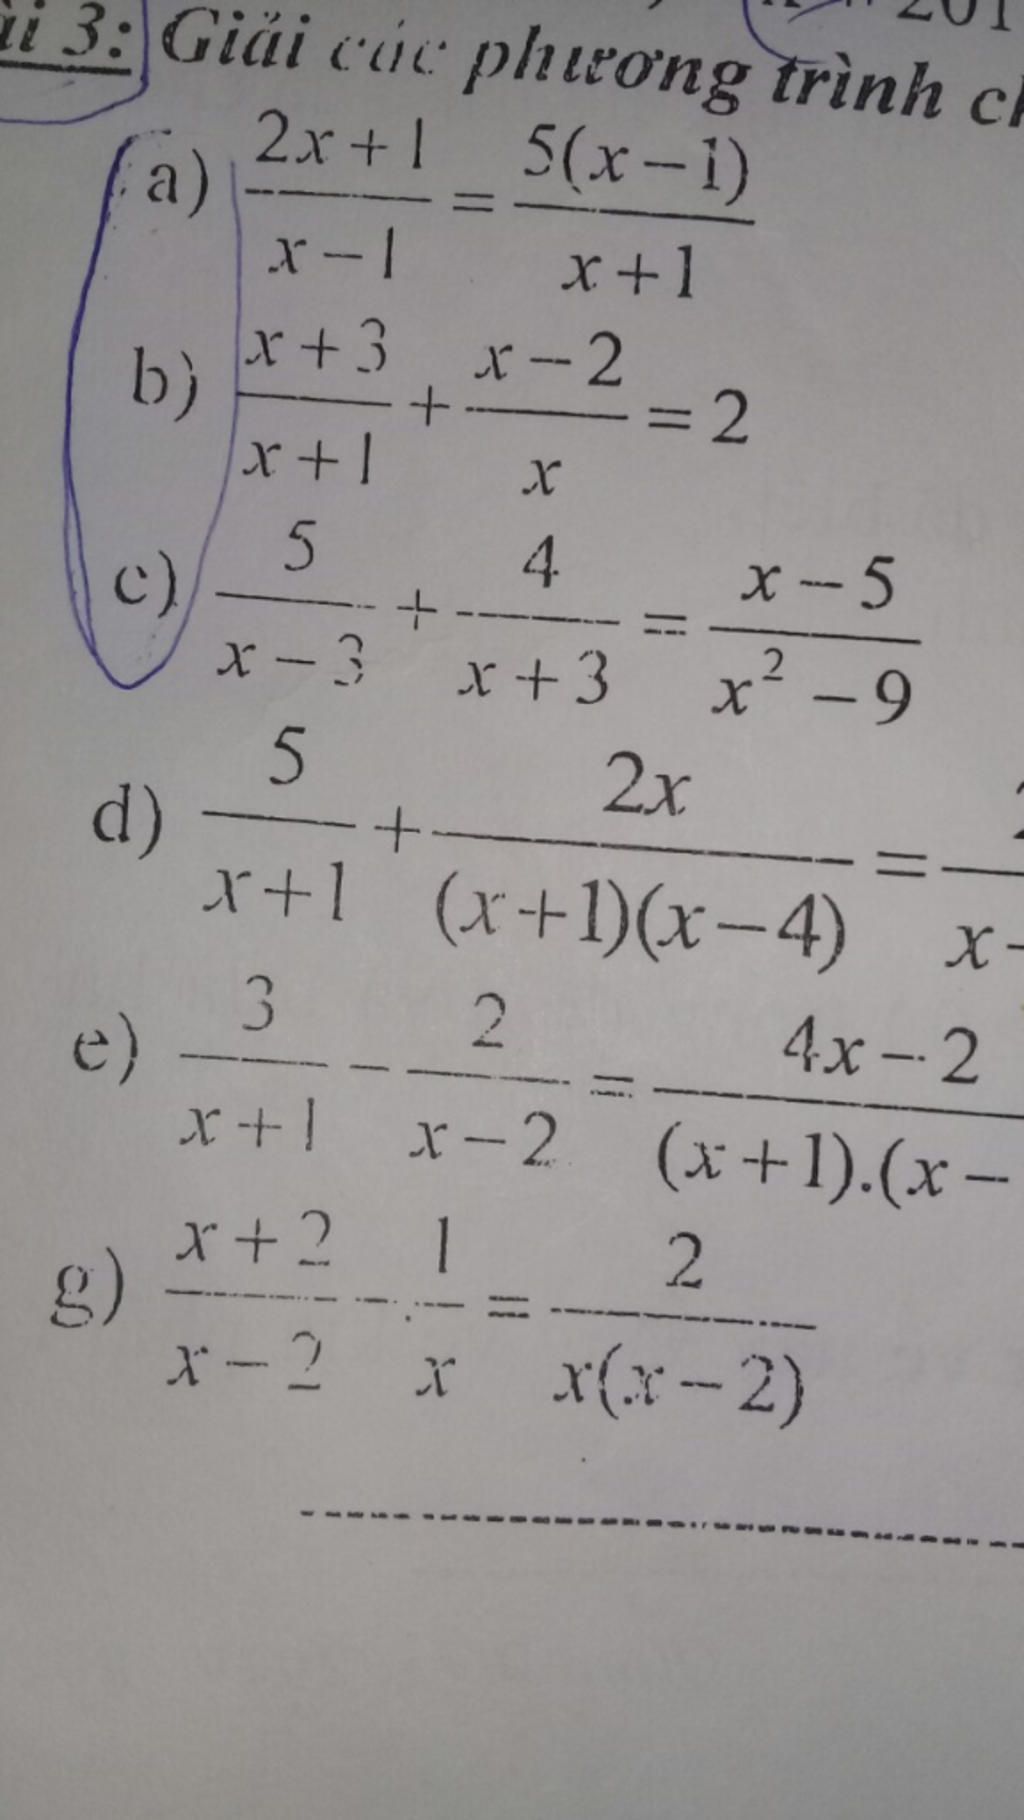 ài 3: Giải các phương trình ch
a) \frac{2x+1}{x-1} = \frac{5(x-1)}{x+1}
b) \frac{x+3}{x+1} + \frac{x-2}{x} = 2
c) \frac{5}{x-3} + \frac{4}{x+3} = \frac{x-5}{x^2-9}
d) \frac{5}{x+1} + \frac{2x}{(x+1)(x-4)} = \frac{}{x-}
e) \frac{3}{x+1} - \frac{2}{x-2} = \frac{4x-2}{(x+1).(x-}
g) \frac{x+2}{x-2} - \frac{1}{x} = \frac{2}{x(x-2)}